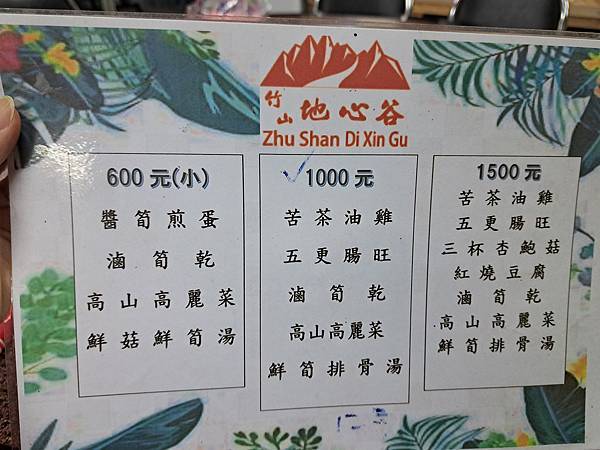 竹山 地心谷
Zhu Shan Di Xin Gu
600 元(小)
醬筍煎蛋
滷筍乾
高山高麗菜
鮮菇鮮筍湯
1000 元
苦茶油雞
五更腸旺
滷筍乾
高山高麗菜
鮮筍排骨湯
1500 元
苦茶油雞
五更腸旺
三杯杏鮑菇
紅燒豆腐
滷筍乾
高山高麗菜
鮮筍排骨湯